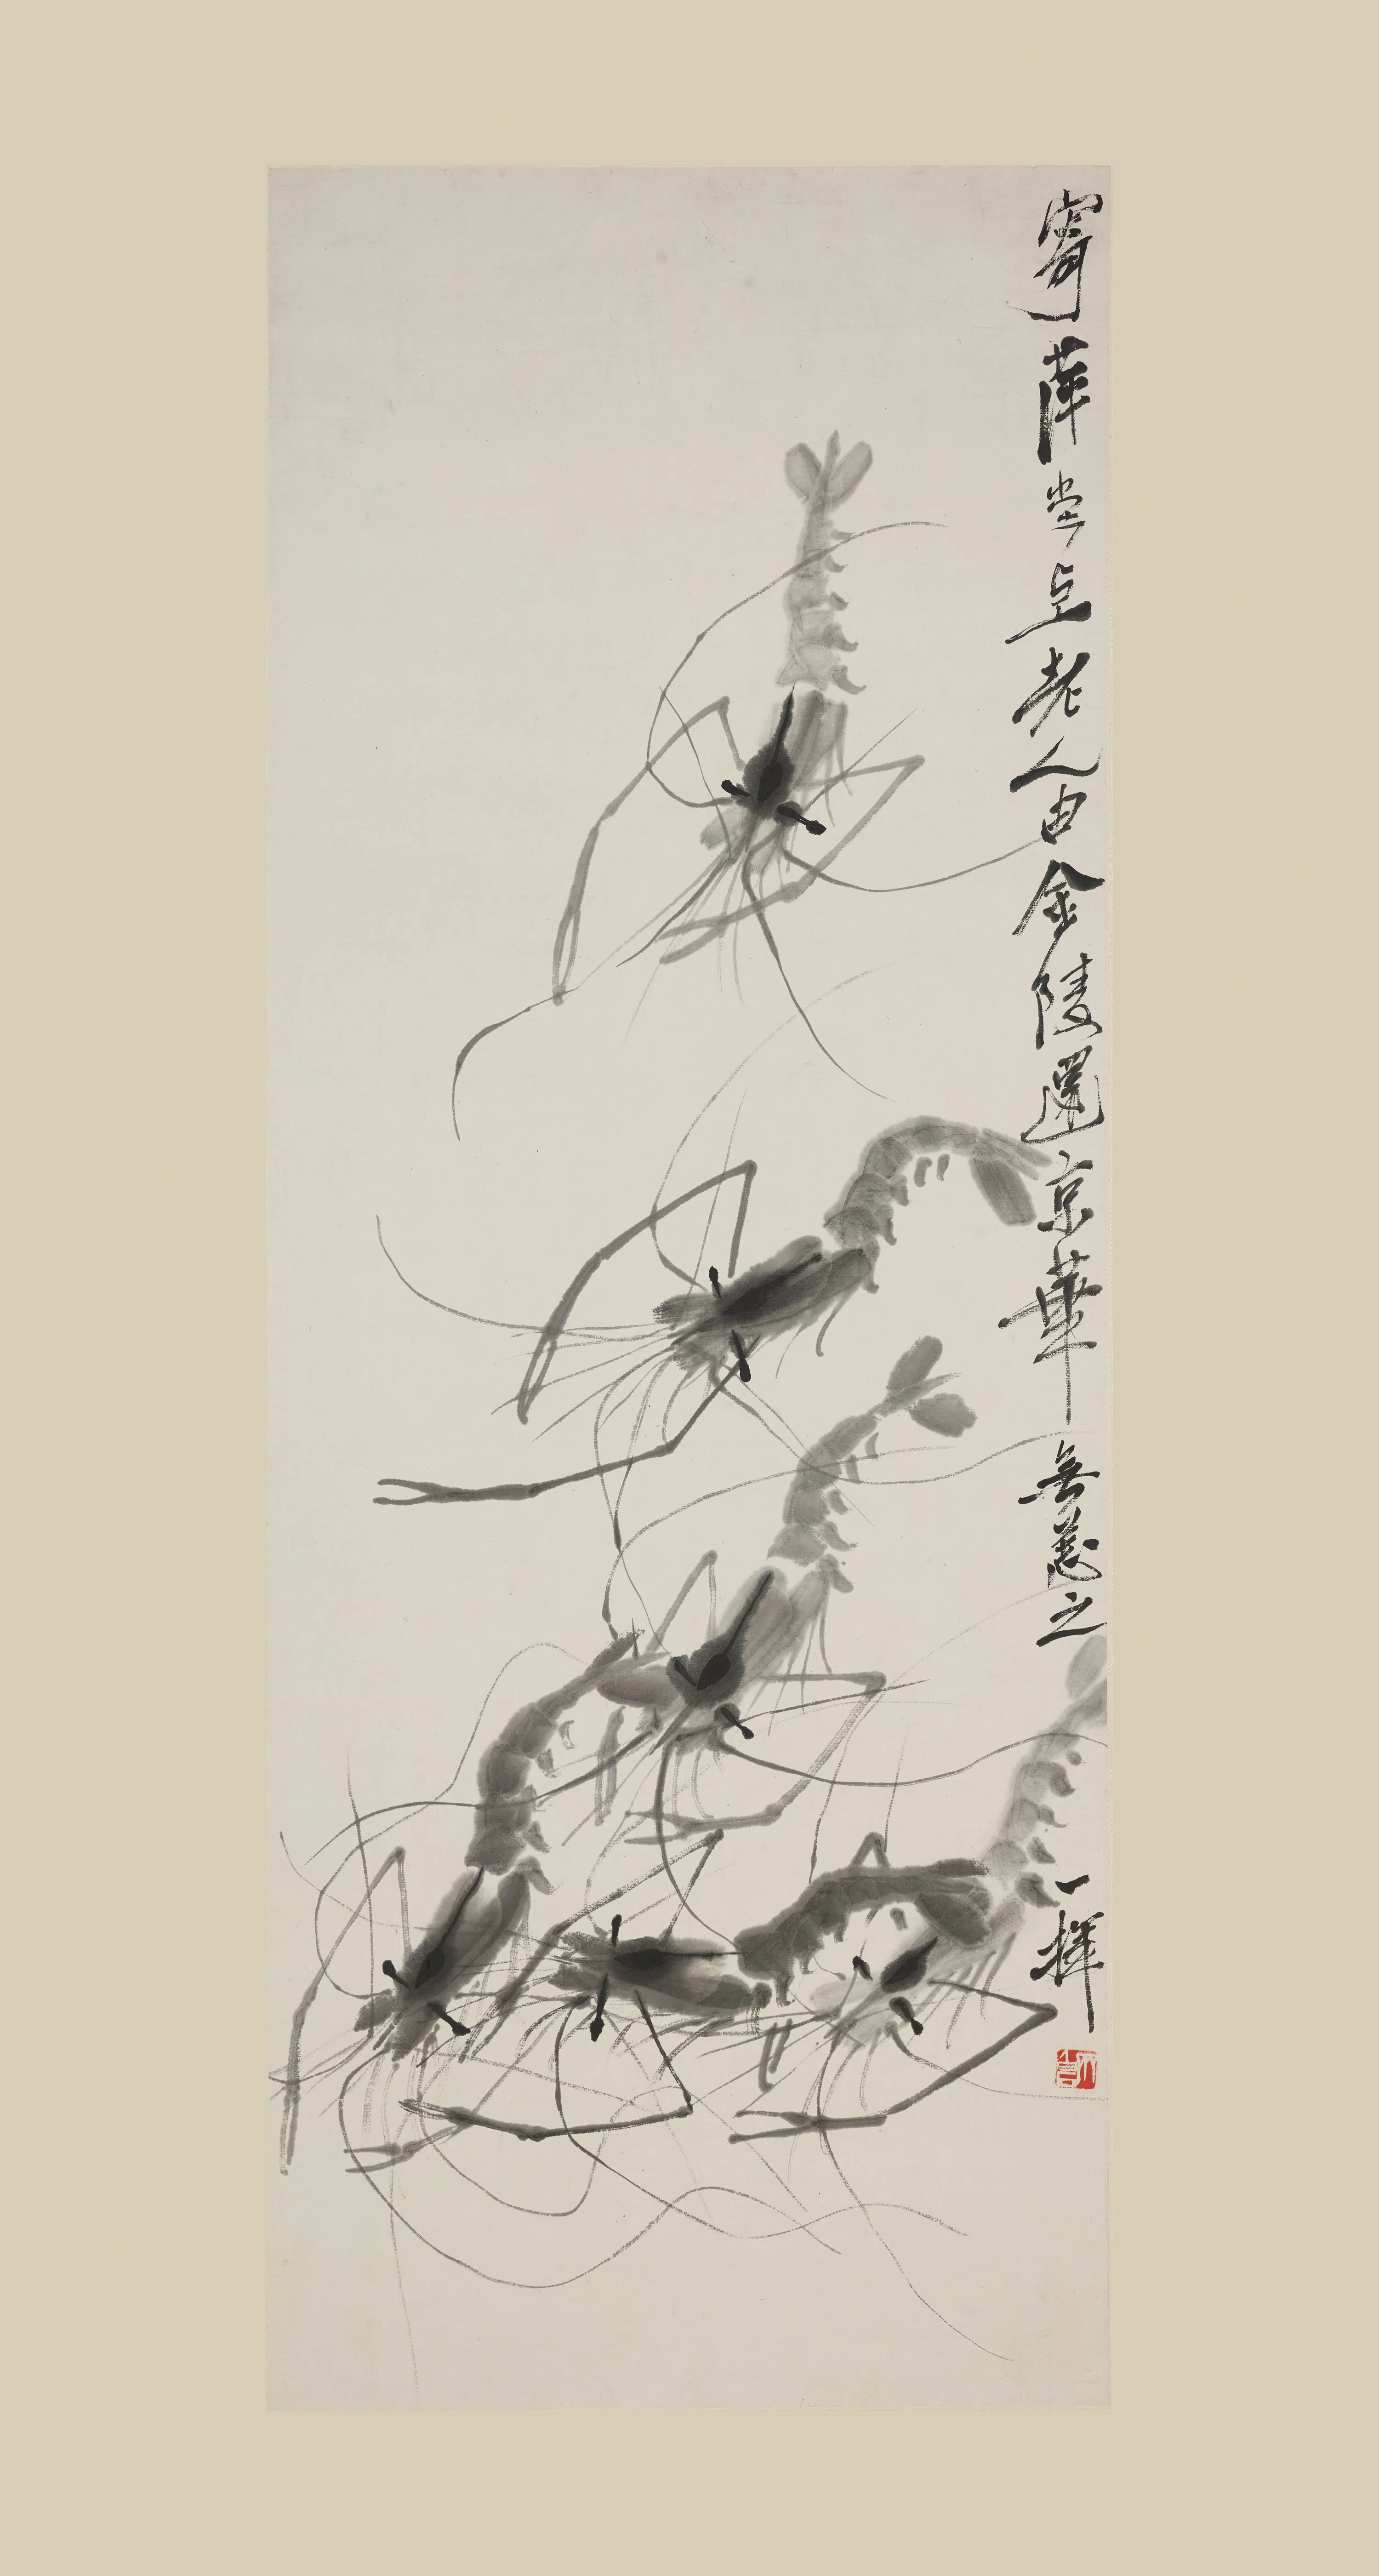 寄萍堂上老人由金陵還京華無恙之一揮